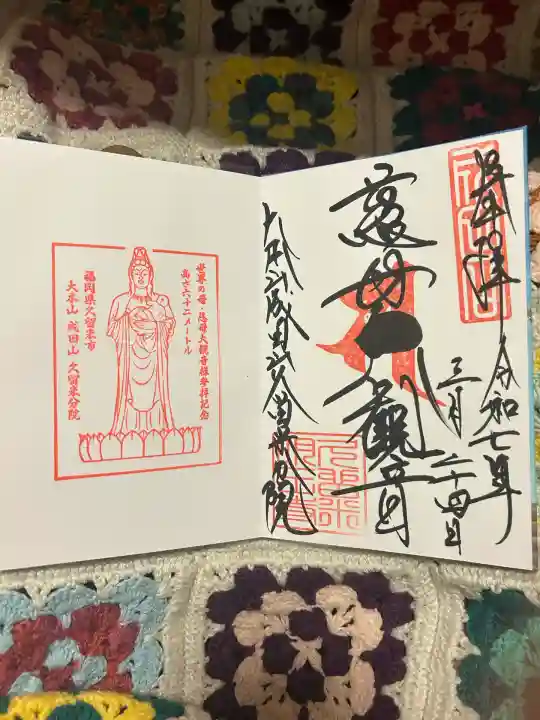 奉拝 令和七年
三月二十四日
慈母大観音
大本山成田山久留米分院
成田山
世界の母・慈母大観音様参拝記念
高さ六十二メートル
福岡県久留米市
大本山 成田山 久留米分院